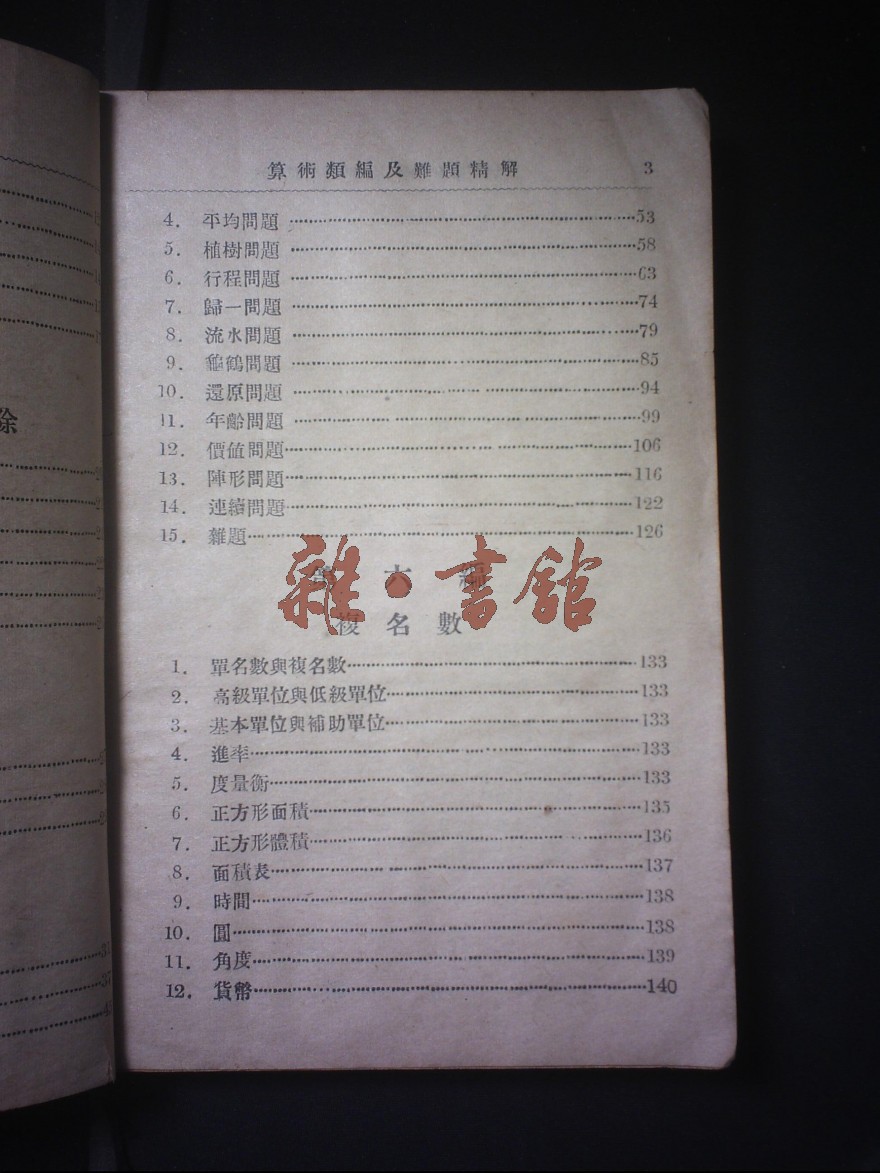 算術類編及難題精解 3
4. 平均問題 53
5. 植樹問題 58
6. 行程問題 63
7. 歸一問題 74
8. 流水問題 79
9. 龜鶴問題 85
10. 還原問題 94
11. 年齡問題 99
12. 價值問題 106
13. 陣形問題 116
14. 連續問題 122
15. 雜題 126
第六編
雜·書館
複名數
1. 單名數與複名數 133
2. 高級單位與低級單位 133
3. 基本單位與補助單位 133
4. 進率 133
5. 度量衡 133
6. 正方形面積 135
7. 正方形體積 136
8. 面積表 137
9. 時間 138
10. 圓 138
11. 角度 139
12. 貨幣 140
除